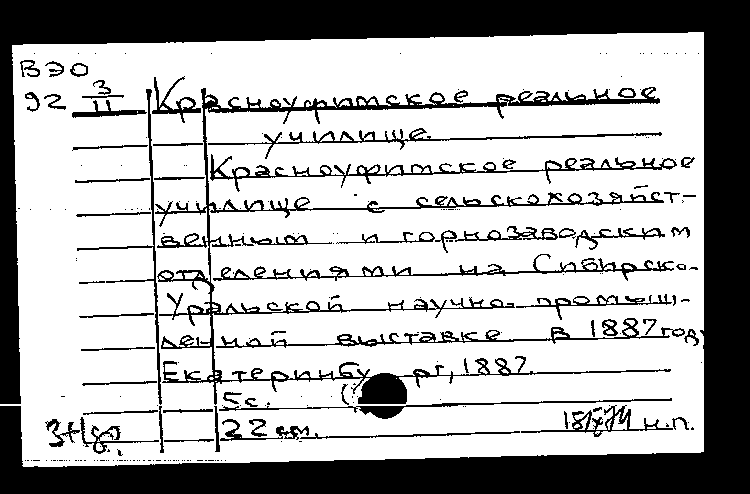 ВЭО
92 3/11 Красноуфимское реальное
училище.
Красноуфимское реальное
училище с сельскохозяйст-
венным и горнозаводским
отделениями на Сибирско-
Уральской научно-промыш-
ленной выставке в 1887 году
Екатеринбург, 1887.
5с.
22 см. н.п.